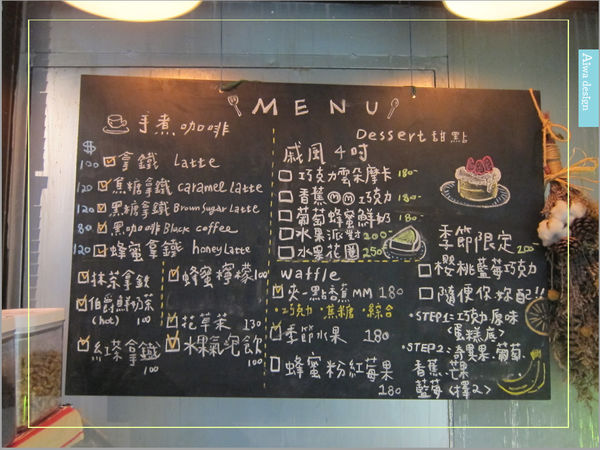 MENU
手煮咖啡
$
100 拿鐵 Latte
120 焦糖拿鐵 caramel Latte
120 黑糖拿鐵 Brown Sugar Latte
80 黑咖啡 Black coffee
120 蜂蜜拿鐵 honey Latte
抹茶拿鐵
伯爵鮮奶茶
(hot) 100
紅茶拿鐵
100
蜂蜜檸檬 100
花草茶 130
水果氣泡飲
100
Dessert 甜點
戚風 4吋
巧克力雲朵摩卡 180-
香蕉ⓜⓜ巧克力 180-
葡萄蜂蜜鮮奶 180-
水果派對 200-
水果花圈 250-
waffle
夾一點香蕉MM 180
·巧克力·焦糖·綜合
季節水果 180
蜂蜜粉紅莓果 180
季節限定
200-
櫻桃藍莓巧克力
隨便你妳配!!
·STEP1:巧克力原味
(蛋糕底)
·STEP2:奇異果·葡萄
香蕉 芒果
藍莓 <擇2>
Aiwa design